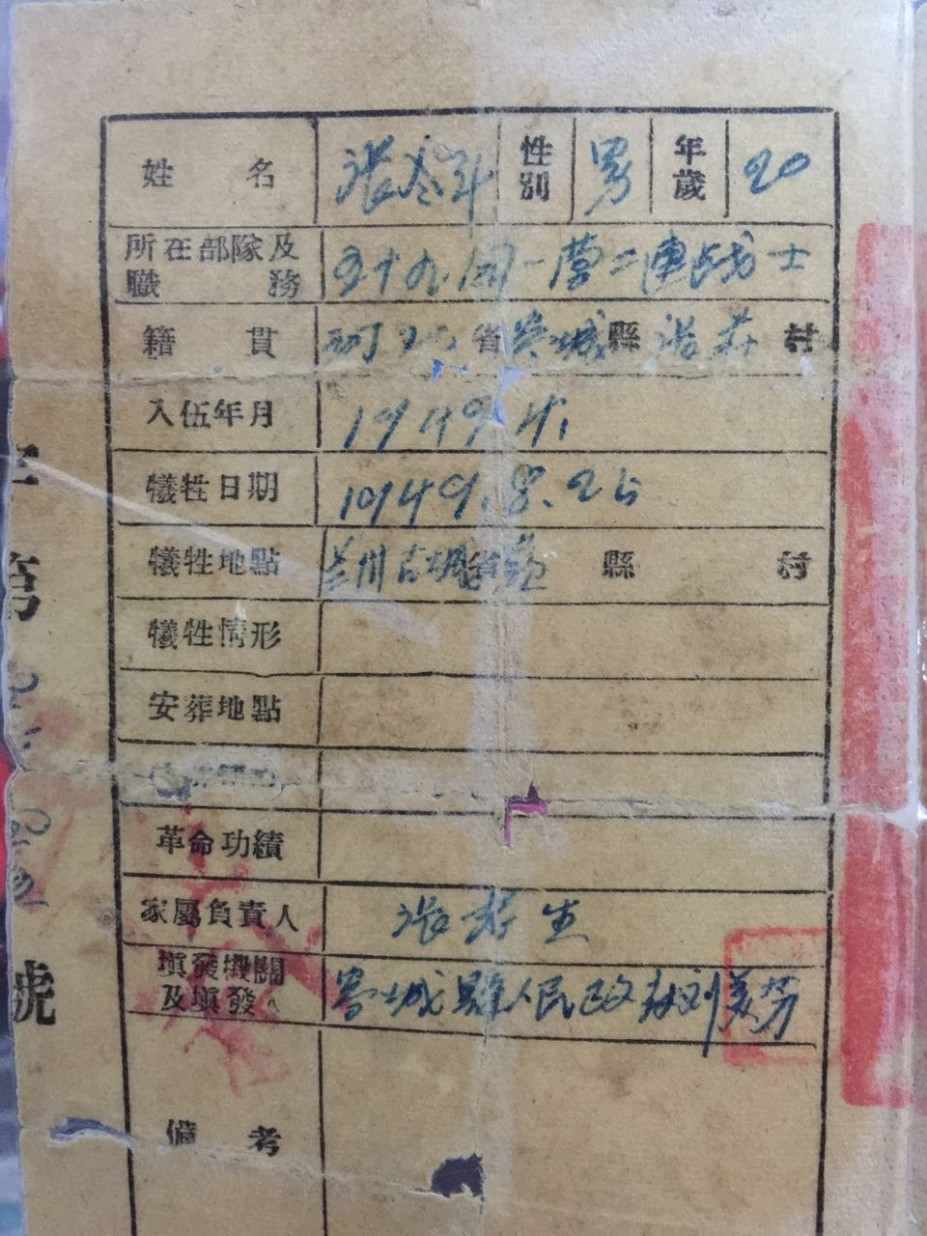 姓名 張 性別 男 年歲 20
所在部隊及職務 五十九団一营二連战士
籍貫 省 城縣 村
入伍年月 1949 4,
犧牲日期 1949.8.25
犧牲地點 兰州古城 省 縣 村
犧牲情形
安葬地點
革命功績
家屬負責人 張 生
填發機關及填發 城縣人民政府刘美芳
備考
第
號